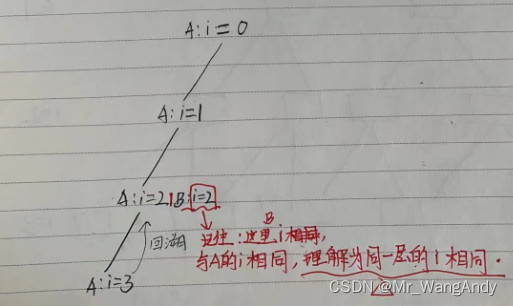 A: i=0
A: i=1
A: i=2, B: i=2
回溯
B
注意:这里i相同,
与A的i相同,理解为同一层的i相同.
A: i=3
CSDN @Mr_WangAndy